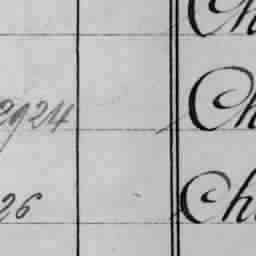 Ch
2924 Ch
26 Ch